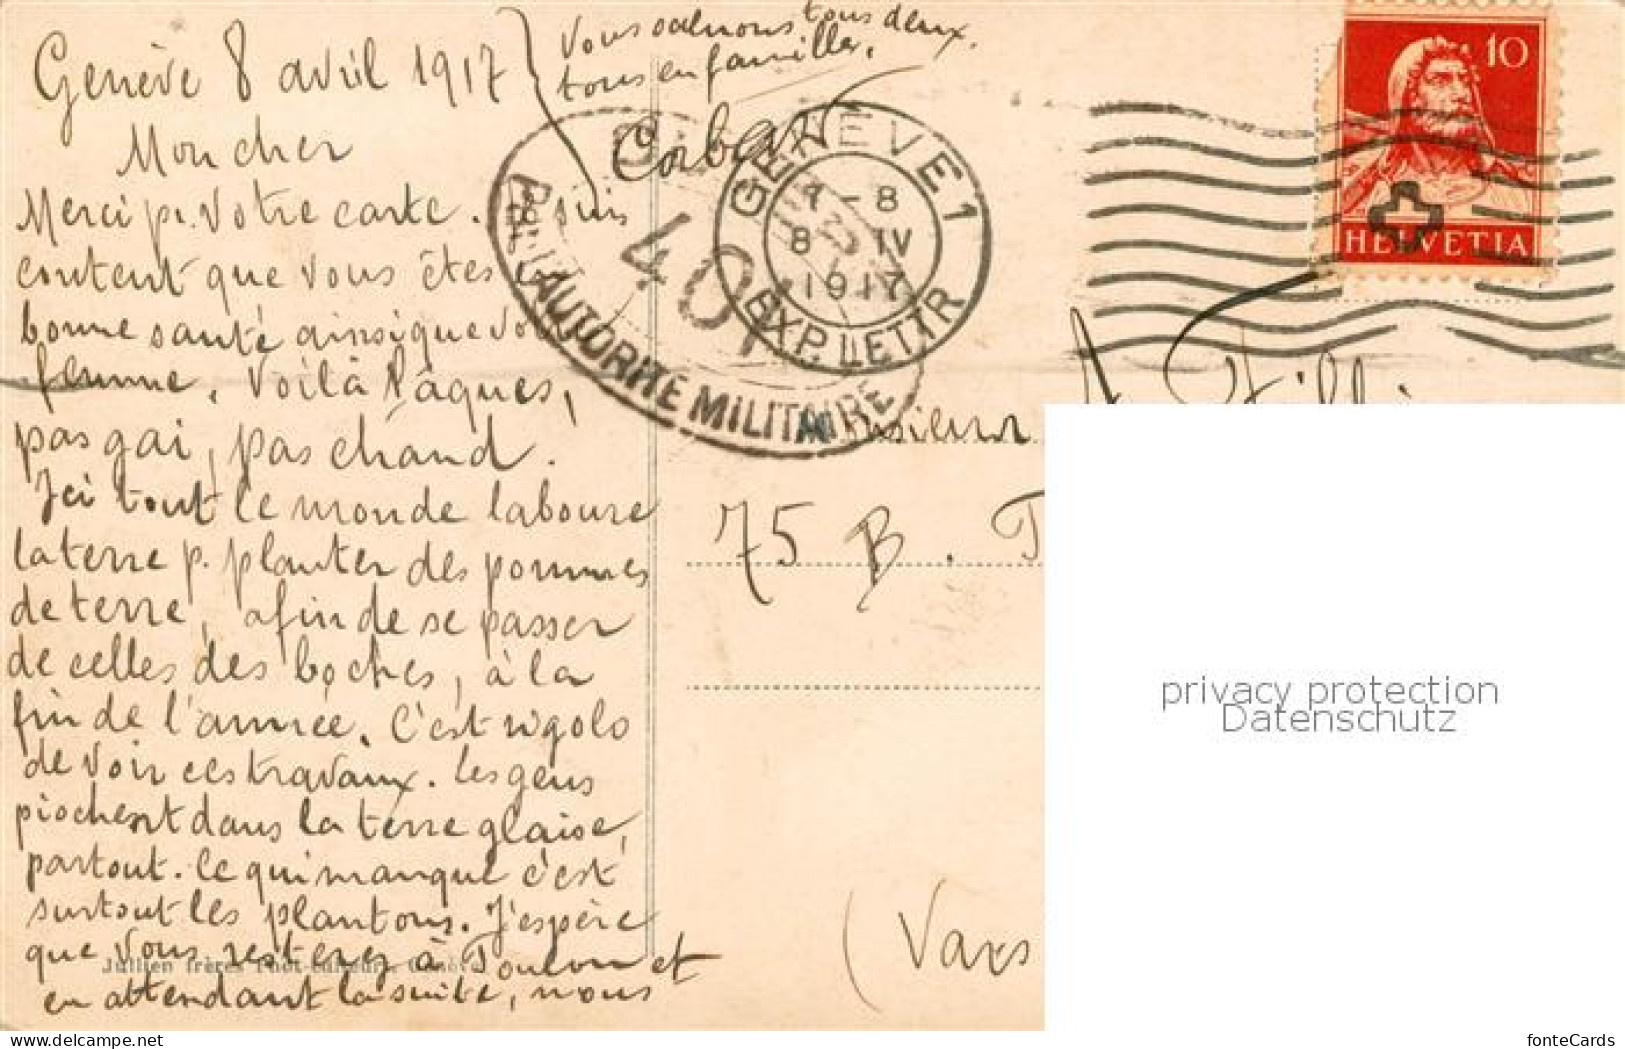 Genève 8 avril 1917
Mon cher
Merci pr. votre carte. Je suis
content que vous êtes
bonne santé ainsi que vo
femme. Voilà Pâques,
pas gai, pas chaud.
Ici tout le monde laboure
la terre p. planter des pommes
de terre, afin de se passer
de celles des boches, à la
fin de l'année. C'est rigolo
de voir ces travaux. Les gens
piochent dans la terre glaise,
partout. Ce qui manque c'est
surtout les plantons. J'espère
que vous resterez à Toulon et
en attendant la suite, nous
Vous saluons tous deux,
tous en famille.
Jullien frères Phot-éditeurs, Genève
PAR L'AUTORITÉ MILITAIRE
401
GENÈVE 1
7-8
8 IV
1917
EXP. LETTR
10
HELVETIA
Monsieur
75 B. T
(Vars
privacy protection
Datenschutz
fonteCards